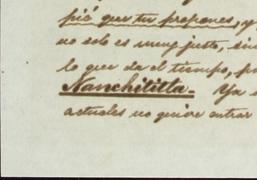 pió que tu propones, y
no solo es muy justo, sin
lo que da el tiempo, por
Nanchititla. Ya
actuales no quiere entrar